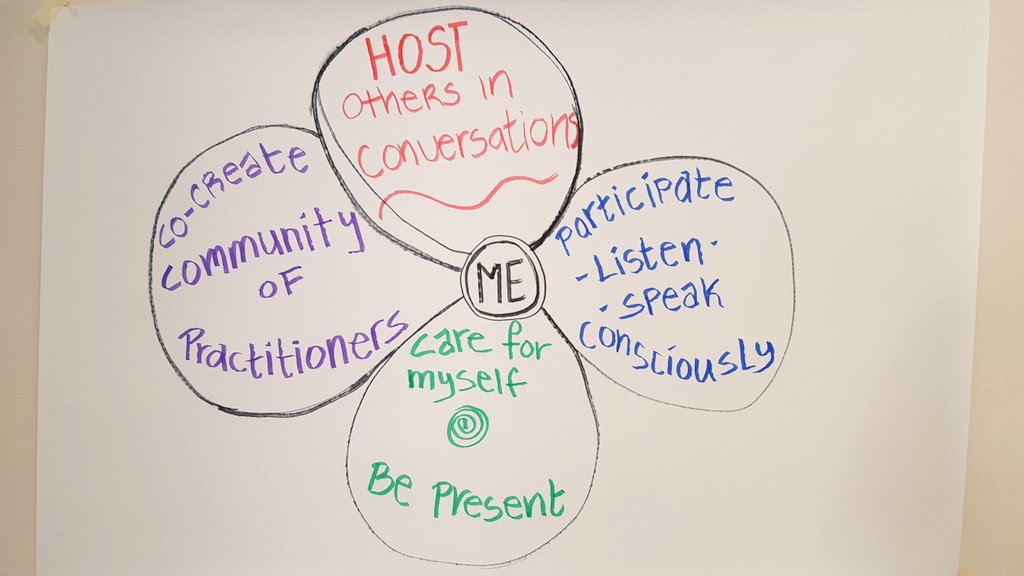 HOST
others in
conversations
co-create
community
of
Practitioners
ME
Participate
- Listen -
- speak
consciously
care for
myself
Be Present